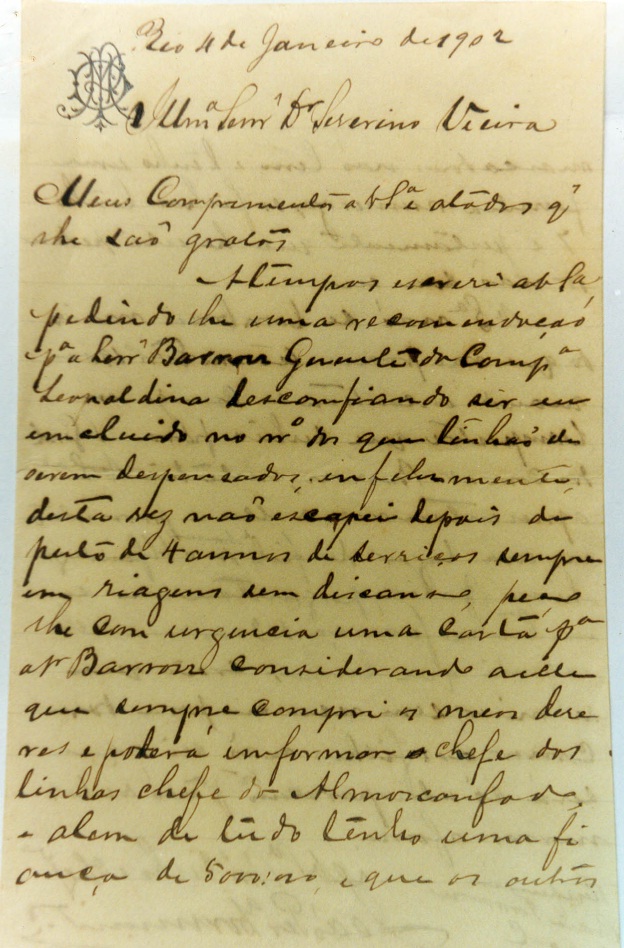 Rio 4 de Janeiro de 1902
Illmº Senr Dr Severino Vieira
Meus Comprimentos a VSª e atodos qº
lhe saõ gratos
Atempos escrevi aVSª,
pedindo lhe uma recomendação
pª o Senr Barrow Gerente da Compª
Leopaldina descomfiando ser eu
emcluido no nº dos que tinhaõ de
serem despensados, infelismente,
desta vez naõ escapei depois de
perto de 4 annos de serviços sempre
em viagens sem discanso, peço
lhe com urgencia uma carta pª
o Sr Barrow considerando a elle
que sempre compri os meos deve
res e poderá imformar o chefe das
linhas chefe do Almoxarifado,
e alem de tudo tenho uma fi
ança de 5000:000, e que os outros